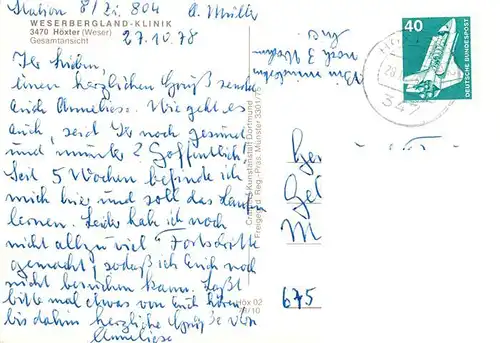 Station 8/Zi. 804 A. Müller
WESERBERGLAND-KLINIK
3470 Höxter (Weser)
Gesamtansicht
27.10.78
Ihr Lieben
einen herzlichen Gruß sendet
Euch Anneliese. Wie geht es
Euch, seid Ihr noch gesund
und munter? Hoffentlich.
Seit 5 Wochen befinde ich
mich hier und soll das Laufen
lernen. Leider hab ich noch
nicht allzu viel Fortschritte
gemacht, sodaß ich Euch noch
nicht besuchen kann. Laßt
bitte mal etwas von Euch hören
bis dahin herzliche Grüße von
Anneliese
noch 3 Wochen
Cramers Kunstanstalt Dortmund
Freigegeb. Reg.-Präs. Münster 3301/75
Höx 02
78/10
40
DEUTSCHE BUNDESPOST
347
M
675